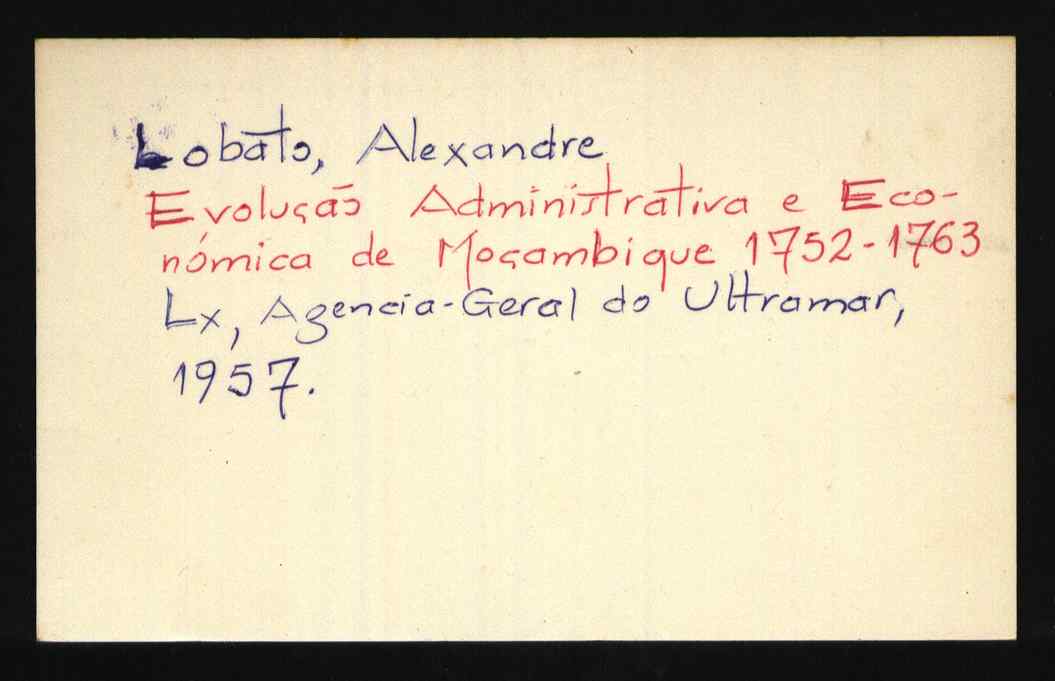 Lobato, Alexandre
Evolução Administrativa e Eco-
nómica de Moçambique 1752-1763
Lx, Agencia-Geral do Ultramar,
1957.